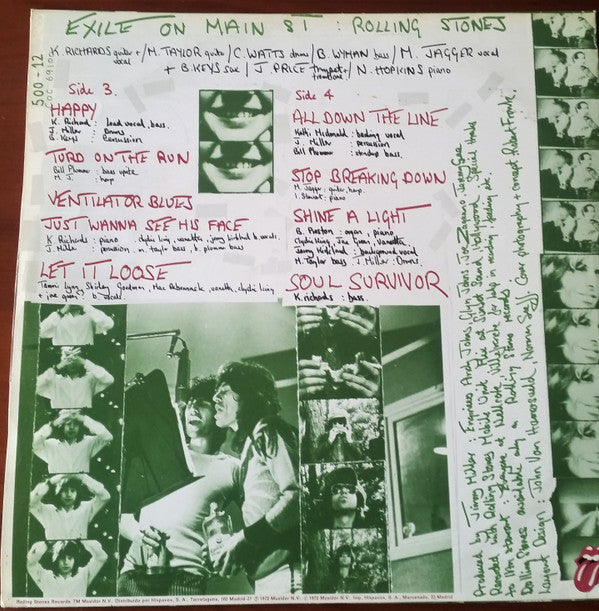 EXILE ON MAIN ST : ROLLING STONES
K. RICHARDS guitar + / M. TAYLOR guite / C. WATTS drums / B. WYMAN bass / M. JAGGER vocal
vocal
+ B. KEYS sax / J. PRICE trumpet + / N. HOPKINS piano
trombone
500-12
COC 69100
Side 3.
HAPPY
K. Richard : lead vocal, bass.
J. Miller : Drums
B. Keys : Percussion
TURD ON THE RUN
Bill Plummer : bass uprite
M. J. : harp
VENTILATOR BLUES
JUST WANNA SEE HIS FACE
K. Richards : piano clydie king, venetta, jerry kirkland b. vocals,
J. Miller : percussion m. taylor bass, b. plummer bass
LET IT LOOSE
Tammi Lynn, Shirley Goodman, Mac Rebennack, venetta, clydie king
+ joe green : b. vocals
Side 4
ALL DOWN THE LINE
Kathi Mcdonald : backing vocal
J. Miller : percussion
Bill Plummer : standup bass.
STOP BREAKING DOWN
M. Jagger : guitar, harp.
I. Stewart : piano.
SHINE A LIGHT
B. Preston : organ, piano,
Clydie King, Joe Green, Venetta,
Jerry Kirkland : background vocal
M. Taylor bass J. Miller : Drums
SOUL SURVIVOR
K. richards : bass.
Produced by Jimmy Miller : Engineers Andy Johns, Glyn Johns, Joe Zagarino, Jeremy Gee
Recorded with Rolling Stones Mobile Unit. Also at Sunset Sound, Hollywood. Special thanks
to Ian Stewart :
Rolling Stones available only on Rolling Stones records.
Layout Design : John Van Hamersveld, Norman Seeff Cover photography + concept Robert Frank.
Rolling Stones Records. TM Musidor N.V. Distribuido por Hispavox, S. A., Torrelaguna, 102 Madrid-27 Ⓟ 1972 Musidor N.V. © 1972 Musidor N.V. Imp. Hispavox, S. A., Marcenado, 33 Madrid